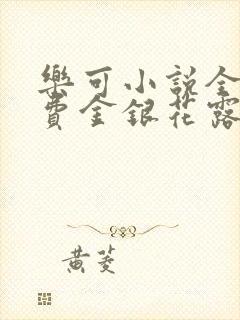 樂可小說全
費金銀花露
黃菱